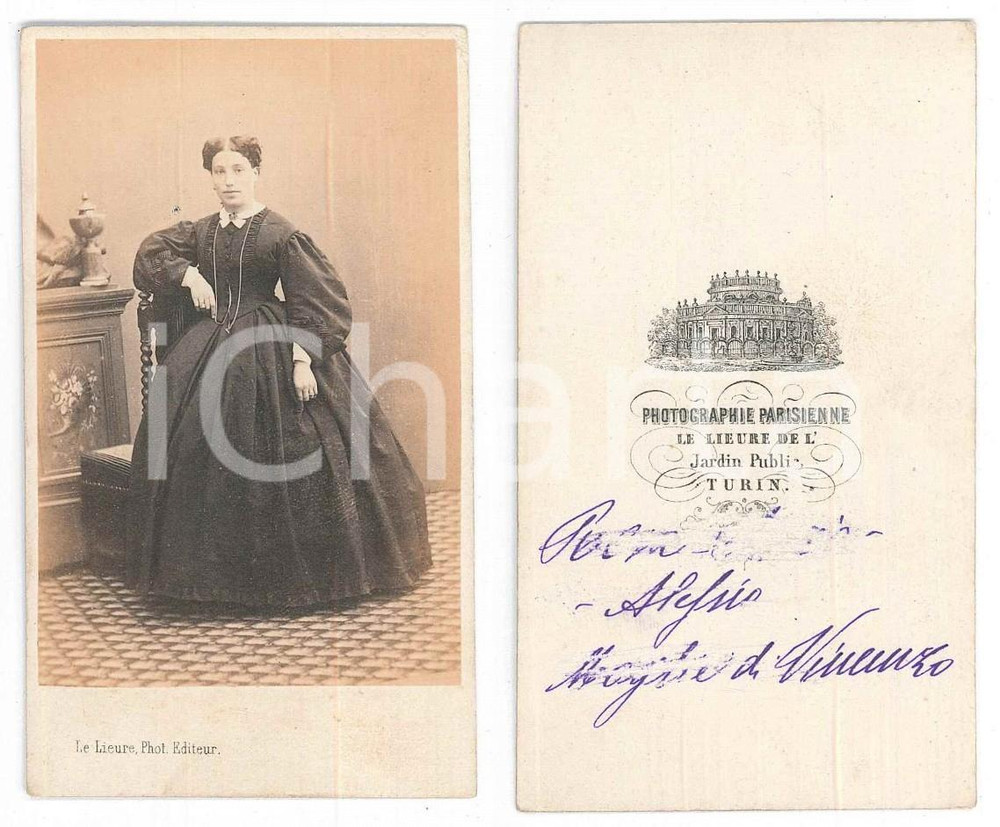 Le Lieure, Phot. Editeur.
iCharta
PHOTOGRAPHIE PARISIENNE
LE LIEURE DE L'
Jardin Public,
TURIN.
Alessio
Moglie di Vincenzo